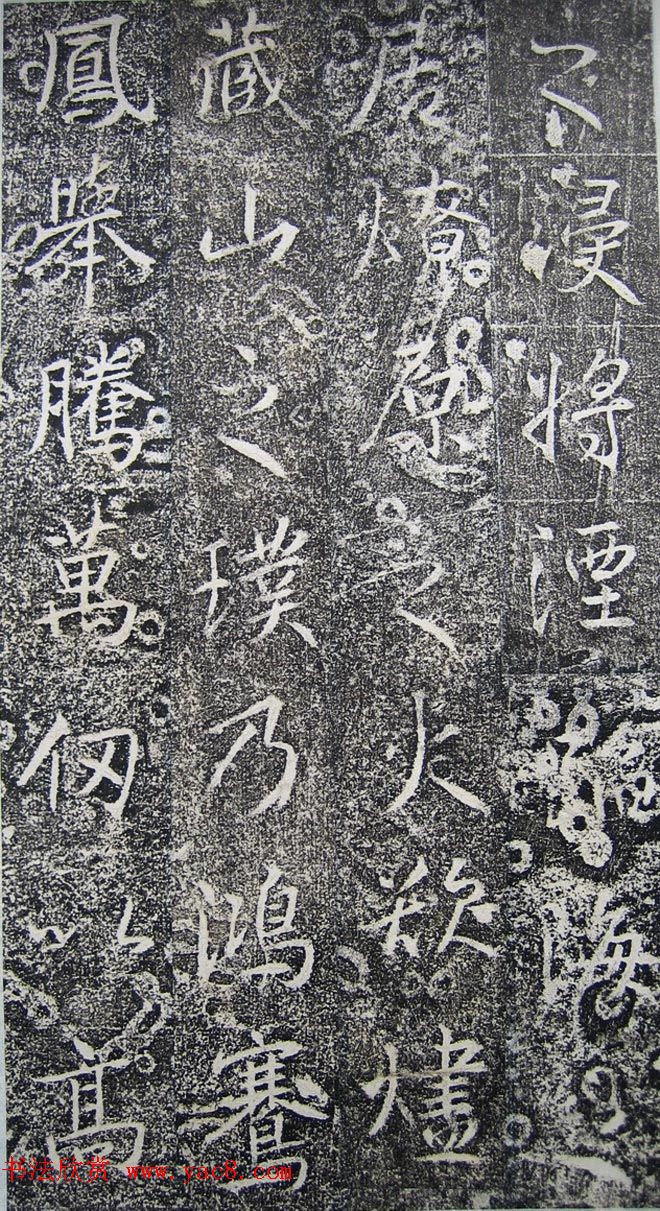 之浸將湮海之
居燎原之火欲燼
藏山之璞乃鴻騫
鳳舉騰萬仞以高
书法欣赏 www.yac8.com